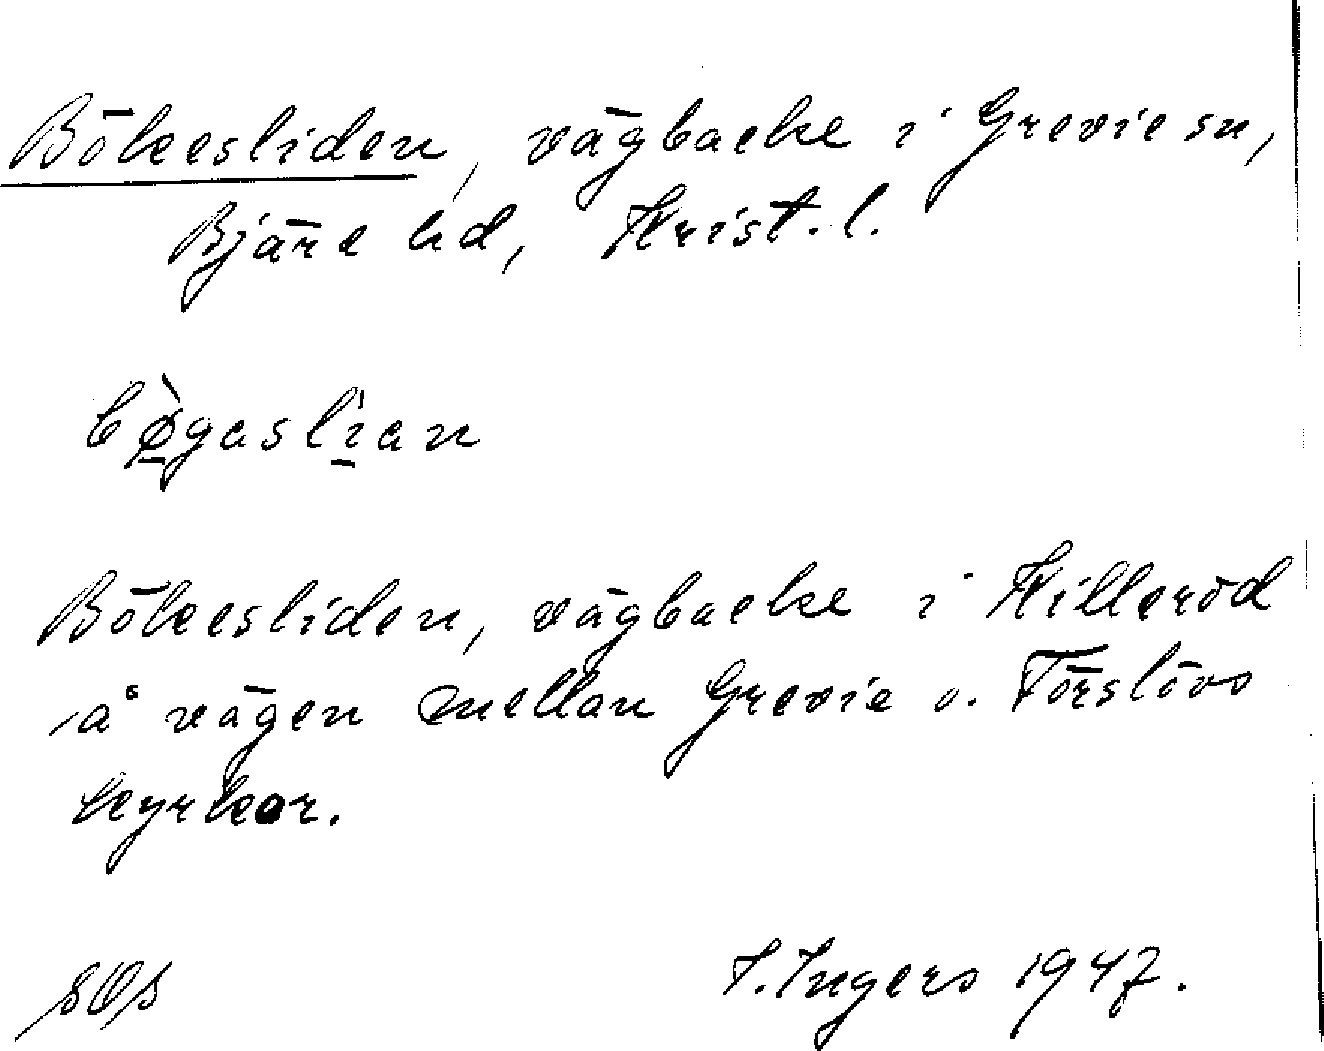 Bökesliden, vägbacke i Grevie sn,
Bjäre hd, Krist. l.
bø̀gaslían
Bökesliden, vägbacke i Killeröd
å vägen mellan Grevie o. Förslövs
kyrkor.
I. Ingers 1947.